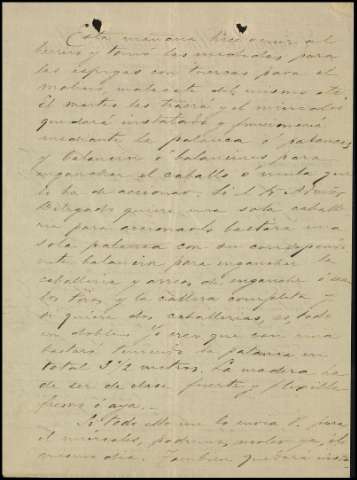 Esta mañana hice venir al
herrero y tomó las medidas para
las espigas con tuercas para el
molino, malacate del mismo etc
El martes las traerá y el miercoles
quedará instalado y funcionará
mediante la palanca ó palancas
y balancin ó balancines para
enganchar el caballo ó mula que
lo ha de accionar. Si el Sr
Delegado quiere una sola caballe
ria para accionarlo bastará una
sola palanca con su correspondi
ente balancin para enganchar la
caballeria y arreos de enganche ó sea
los tiros y la collera completa y
si quiere dos caballerias, es, todo
en doble. Yo creo que con una
bastará teniendo la palanca en
total 3 1/2 metros. La madera ha
de ser de clase fuerte y flexible
fresno ó aya.
Si todo ello me lo envia V. para
el miercoles, podremos moler ya el
mismo dia. Tambien quedará